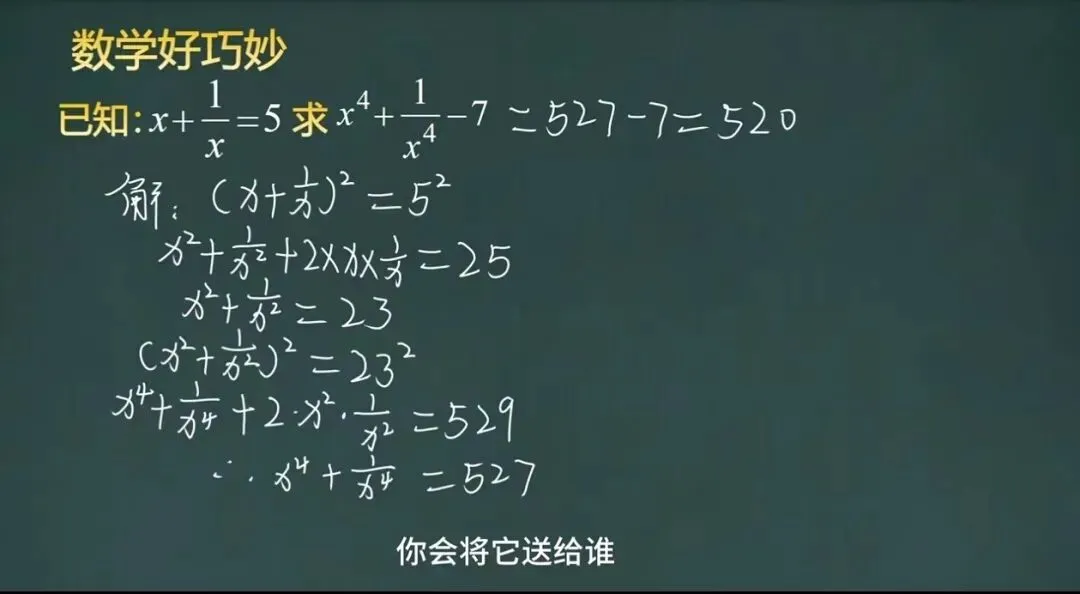 数学好巧妙
已知:x+1/x=5 求 x⁴+1/x⁴-7 =527-7=520
解: (x+1/x)²=5²
x²+1/x²+2×x×1/x=25
x²+1/x²=23
(x²+1/x²)²=23²
x⁴+1/x⁴+2·x²·1/x²=529
∴ x⁴+1/x⁴=527
你会将它送给谁